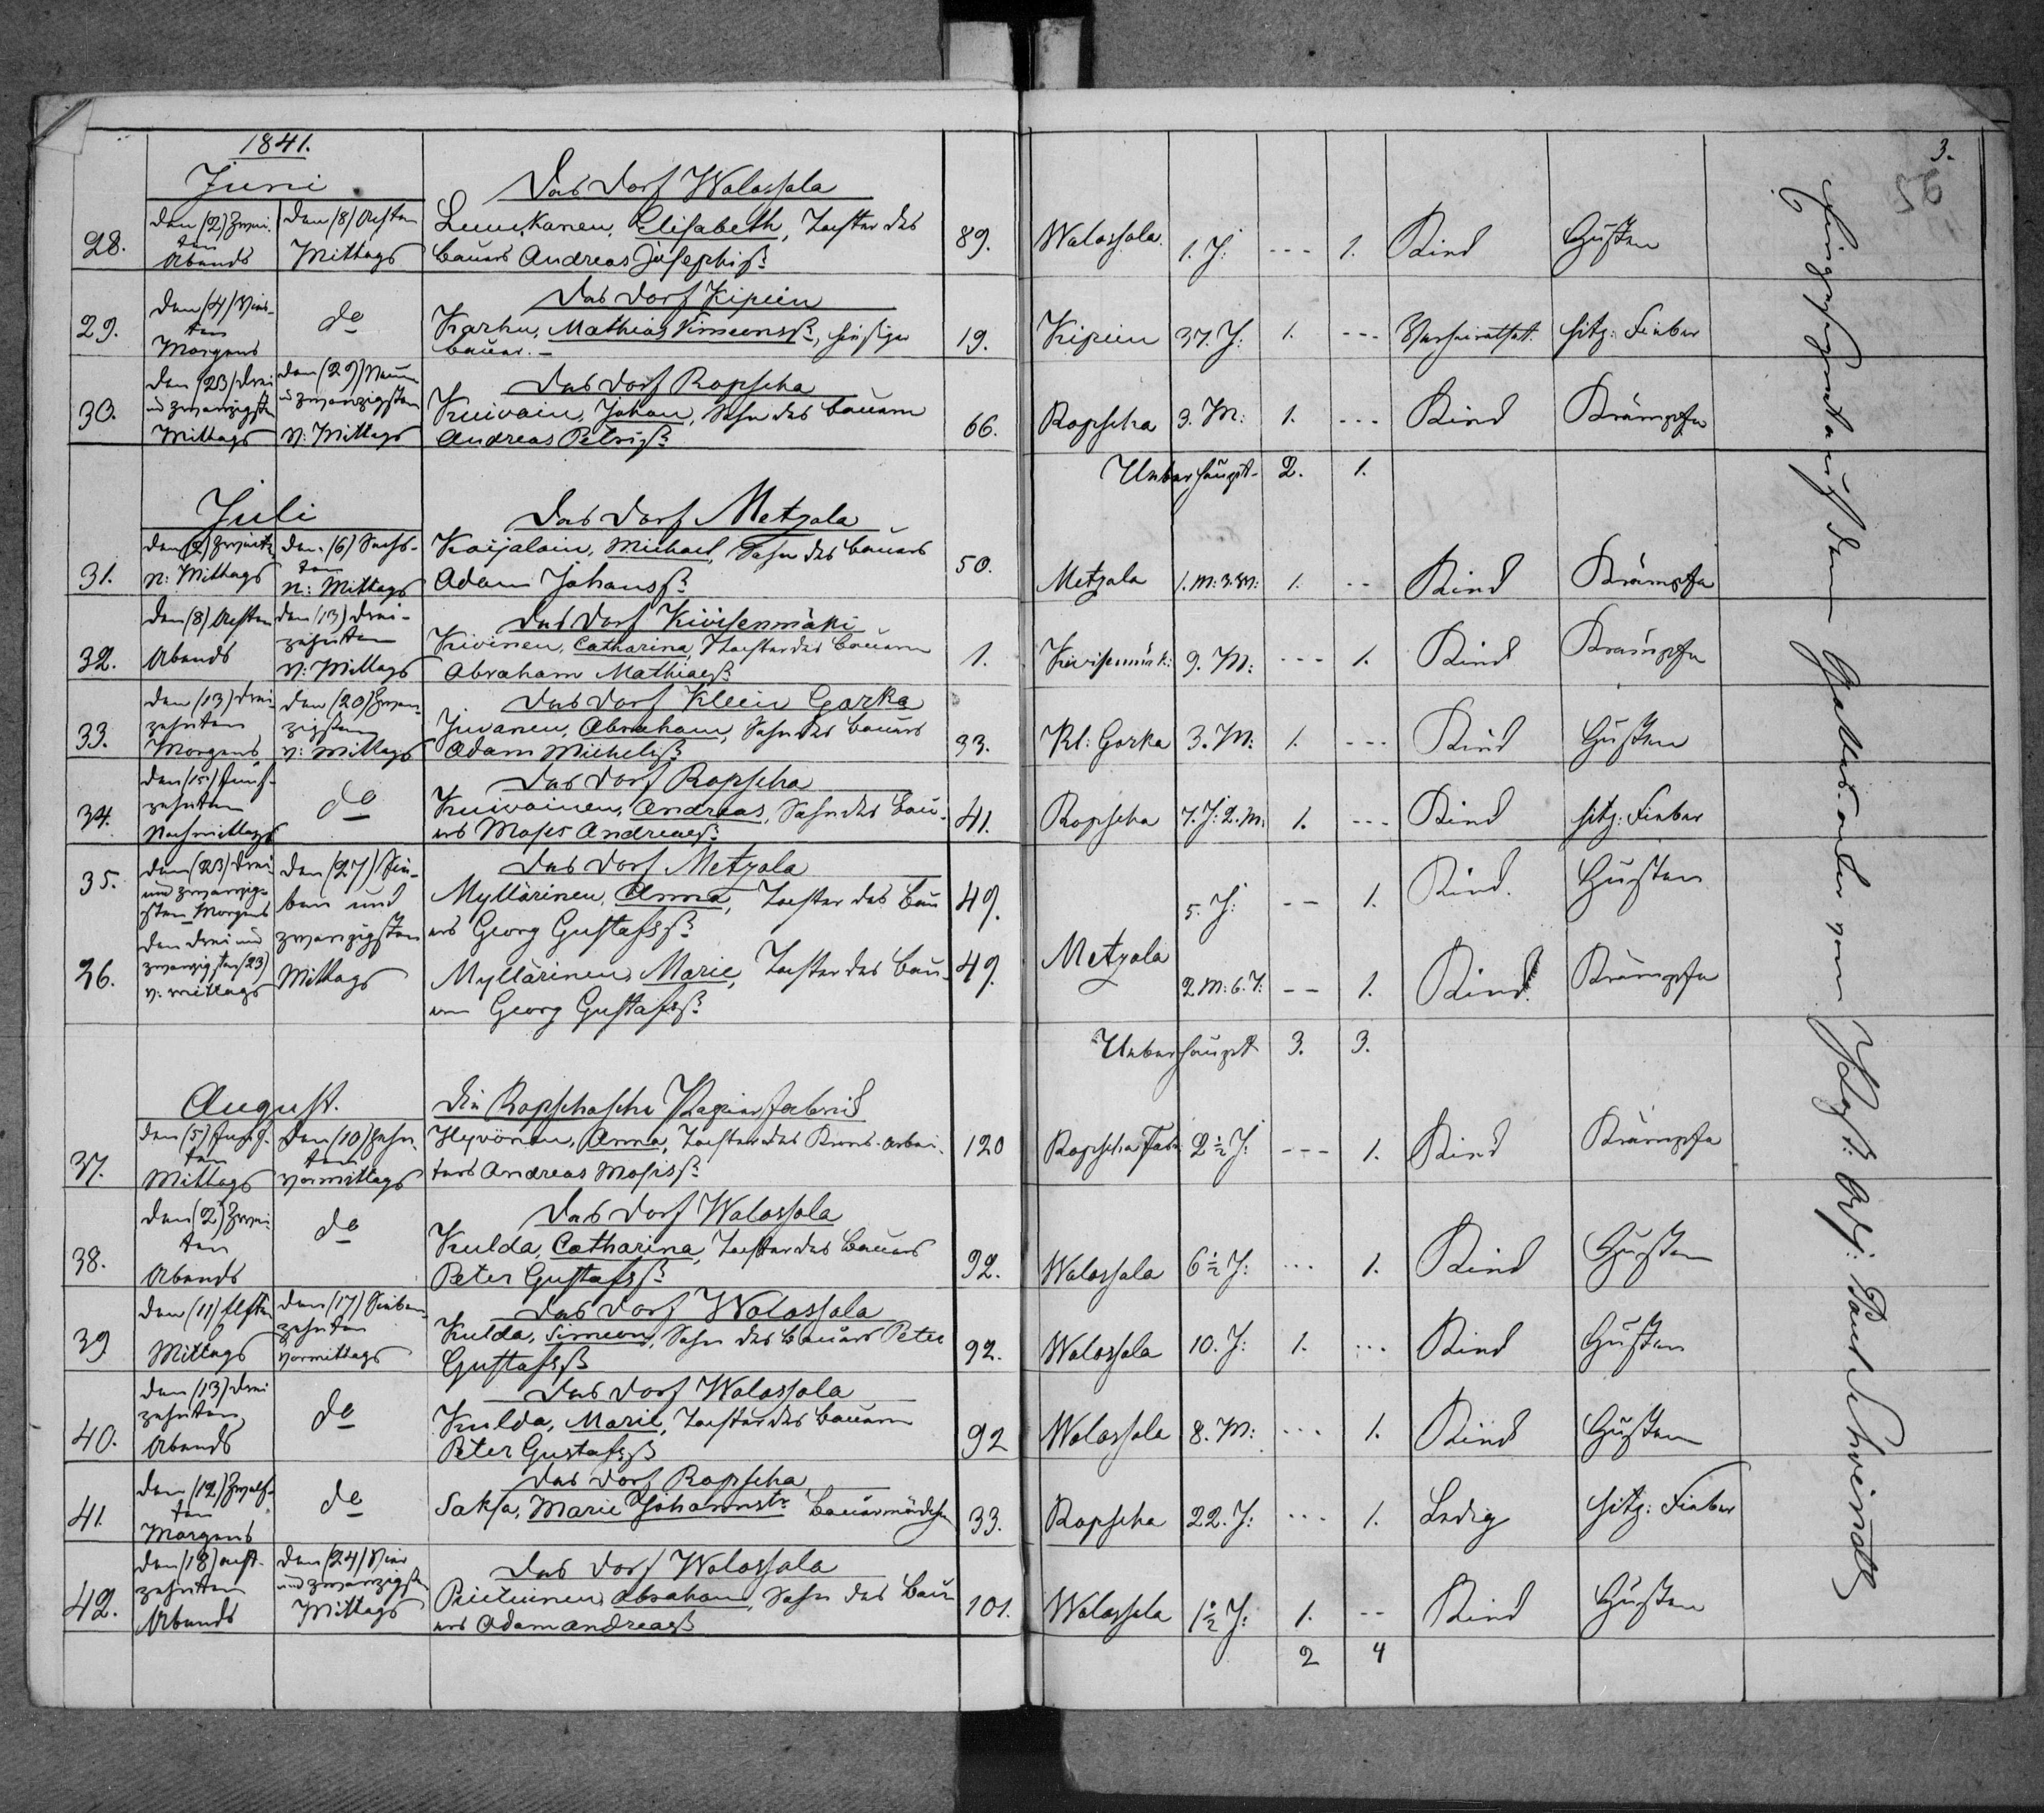 1841.
3.
56
Juni
Das Dorf Walassala
28. den (2) zweiten Abends den (8) Achten Mittags Elisabeth, Tochter des Bauers Andreas Josephiß. 89. Walassala. 1. J: --- 1. Kind Husten
Das Dorf Kipein
29. den (4) Vierten Morgens do Karhu, Mathias Simeonsß., hiesiger Bauer. 19. Kipein 37. J: 1. --- Verheirathet. hitz: Fieber
Das Dorf Ropscha
30. den (23) drei und zwanzigsten Mittags den (29) Neun und zwanzigsten N: Mittags Kuivain, Johan, Sohn des Bauern Andreas Petriß. 66. Ropscha 3. M: 1. --- Kind Krämpfe
Ueberhaupt 2. 1.
Juli
Das Dorf Metzala
31. den (2) zweiten N: Mittags den (6) Sechsten N: Mittags Koijalain, Michael, Sohn des Bauers Adam Johansß. 50. Metzala 1. M: 3 W: 1. -- Kind Krämpfe
Das Dorf Kiwisenmäki
32. den (8) Achten Abends den (13) dreizehnten N: Mittags Kivinen, Catharina, Tochter des Bauern Abraham Mathiaeß. 1. Kiwisenmäk: 9. M: --- 1. Kind Krämpfe
Das Dorf Klein Gorka
33. den (13) dreizehnten Morgens den (20) zwanzigsten N: Mittags Juvanen, Abraham, Sohn des Bauers Adam Micheliß. 33. Kl: Gorka 3. M: 1. --- Kind Husten
Das Dorf Ropscha
34. den (15) fünfzehnten Nachmittags do Kuivainen, Andreas, Sohn des Bauers Moses Andreaeß. 41. Ropscha 7. J: 2. M: 1. --- Kind hitz: Fieber
Das Dorf Metzala
35. den (23) drei und zwanzigsten Morgens den (27) Sieben und zwanzigsten Mittags Myllärinen, Anna, Tochter des Bauers Georg Gustafsß. 49. 5. J: -- 1. Kind. Husten
36. den drei und zwanzigsten (23) V. Mittags Myllärinen, Marie, Tochter des Bauern Georg Gustafsß. 49. Metzala 2 M: 6. T: -- 1. Kind. Krämpfe
Ueberhaupt 3. 3.
August.
Die Ropschasche Papierfabrick
37. den (5) fünften Mittags den (10) zehnten Vormittags Hyvönen, Anna, Tochter des Krons-Arbeiters Andreas Mosisß. 120 Ropscha Fabr. 2½ J: --- 1. Kind Krämpfe
Das Dorf Walassala
38. den (2) zweiten Abends do Kulda, Catharina, Tochter des Bauers Peter Gustafsß. 92. Walassala 6½ J: ... 1. Kind Husten
Das Dorf Walassala
39 den (11) elften Mittags den (17) Siebenzehnten Vormittags Kulda, Simeon, Sohn des Bauers Peter Gustafsß 92. Walassala 10. J: 1. ... Kind Husten
Das Dorf Walassala
40. den (13) dreizehnten Abends do Kulda, Marie, Tochter des Bauern Peter Gustafsß 92 Walassala 8. M: ... 1. Kind Husten
Das Dorf Ropscha
41. den (12) zwölften Morgens do Saksa, Marie Johannstr. Bauermädchen 33. Ropscha 22. J: ... 1. Ledig hitz: Fieber
Das Dorf Walassala
42. den (18) achtzehnten Abends den (24) Vier und zwanzigsten Mittags Abraham, Sohn des Bauers Adam Andreaeß 101. Walassala 1½ J: 1. -- Kind Husten
2 4
auf dem Gottesacker vom Past: Adj: Paul Schwindt